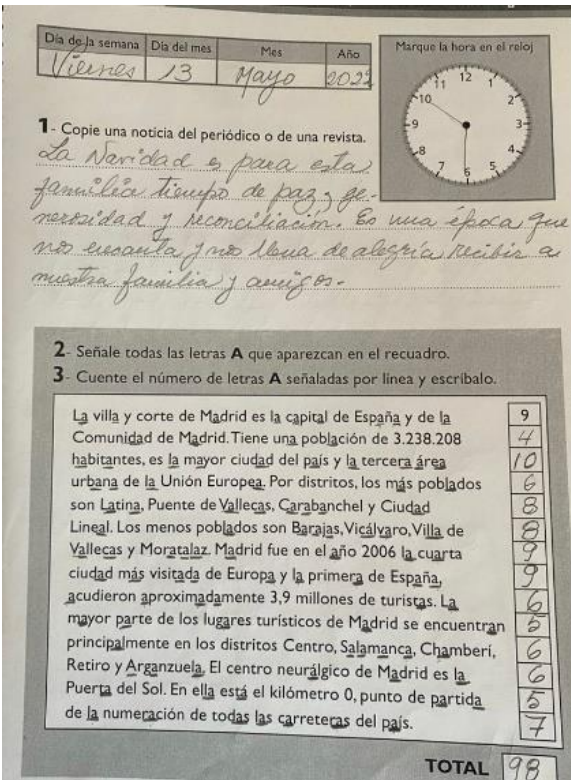 Día de la semana Día del mes Mes Año
Viernes 13 Mayo 2022
Marque la hora en el reloj
12
11 1
10 2
9 3
8 4
7 5
6
1- Copie una noticia del periódico o de una revista.
La Navidad es para esta
familia tiempo de paz, ge-
nerosidad y reconciliación. Es una época que
nos encanta y nos llena de alegría recibir a
nuestra familia y amigos.
2- Señale todas las letras A que aparezcan en el recuadro.
3- Cuente el número de letras A señaladas por linea y escríbalo.
La villa y corte de Madrid es la capital de España y de la 9
Comunidad de Madrid. Tiene una población de 3.238.208 4
habitantes, es la mayor ciudad del país y la tercera área 10
urbana de la Unión Europea. Por distritos, los más poblados 6
son Latina, Puente de Vallecas, Carabanchel y Ciudad 8
Lineal. Los menos poblados son Barajas, Vicálvaro, Villa de 8
Vallecas y Moratalaz. Madrid fue en el año 2006 la cuarta 9
ciudad más visitada de Europa y la primera de España, 9
acudieron aproximadamente 3,9 millones de turistas. La 6
mayor parte de los lugares turísticos de Madrid se encuentran 5
principalmente en los distritos Centro, Salamanca, Chamberí, 6
Retiro y Arganzuela. El centro neurálgico de Madrid es la 6
Puerta del Sol. En ella está el kilómetro 0, punto de partida 5
de la numeración de todas las carreteras del país. 7
TOTAL 98